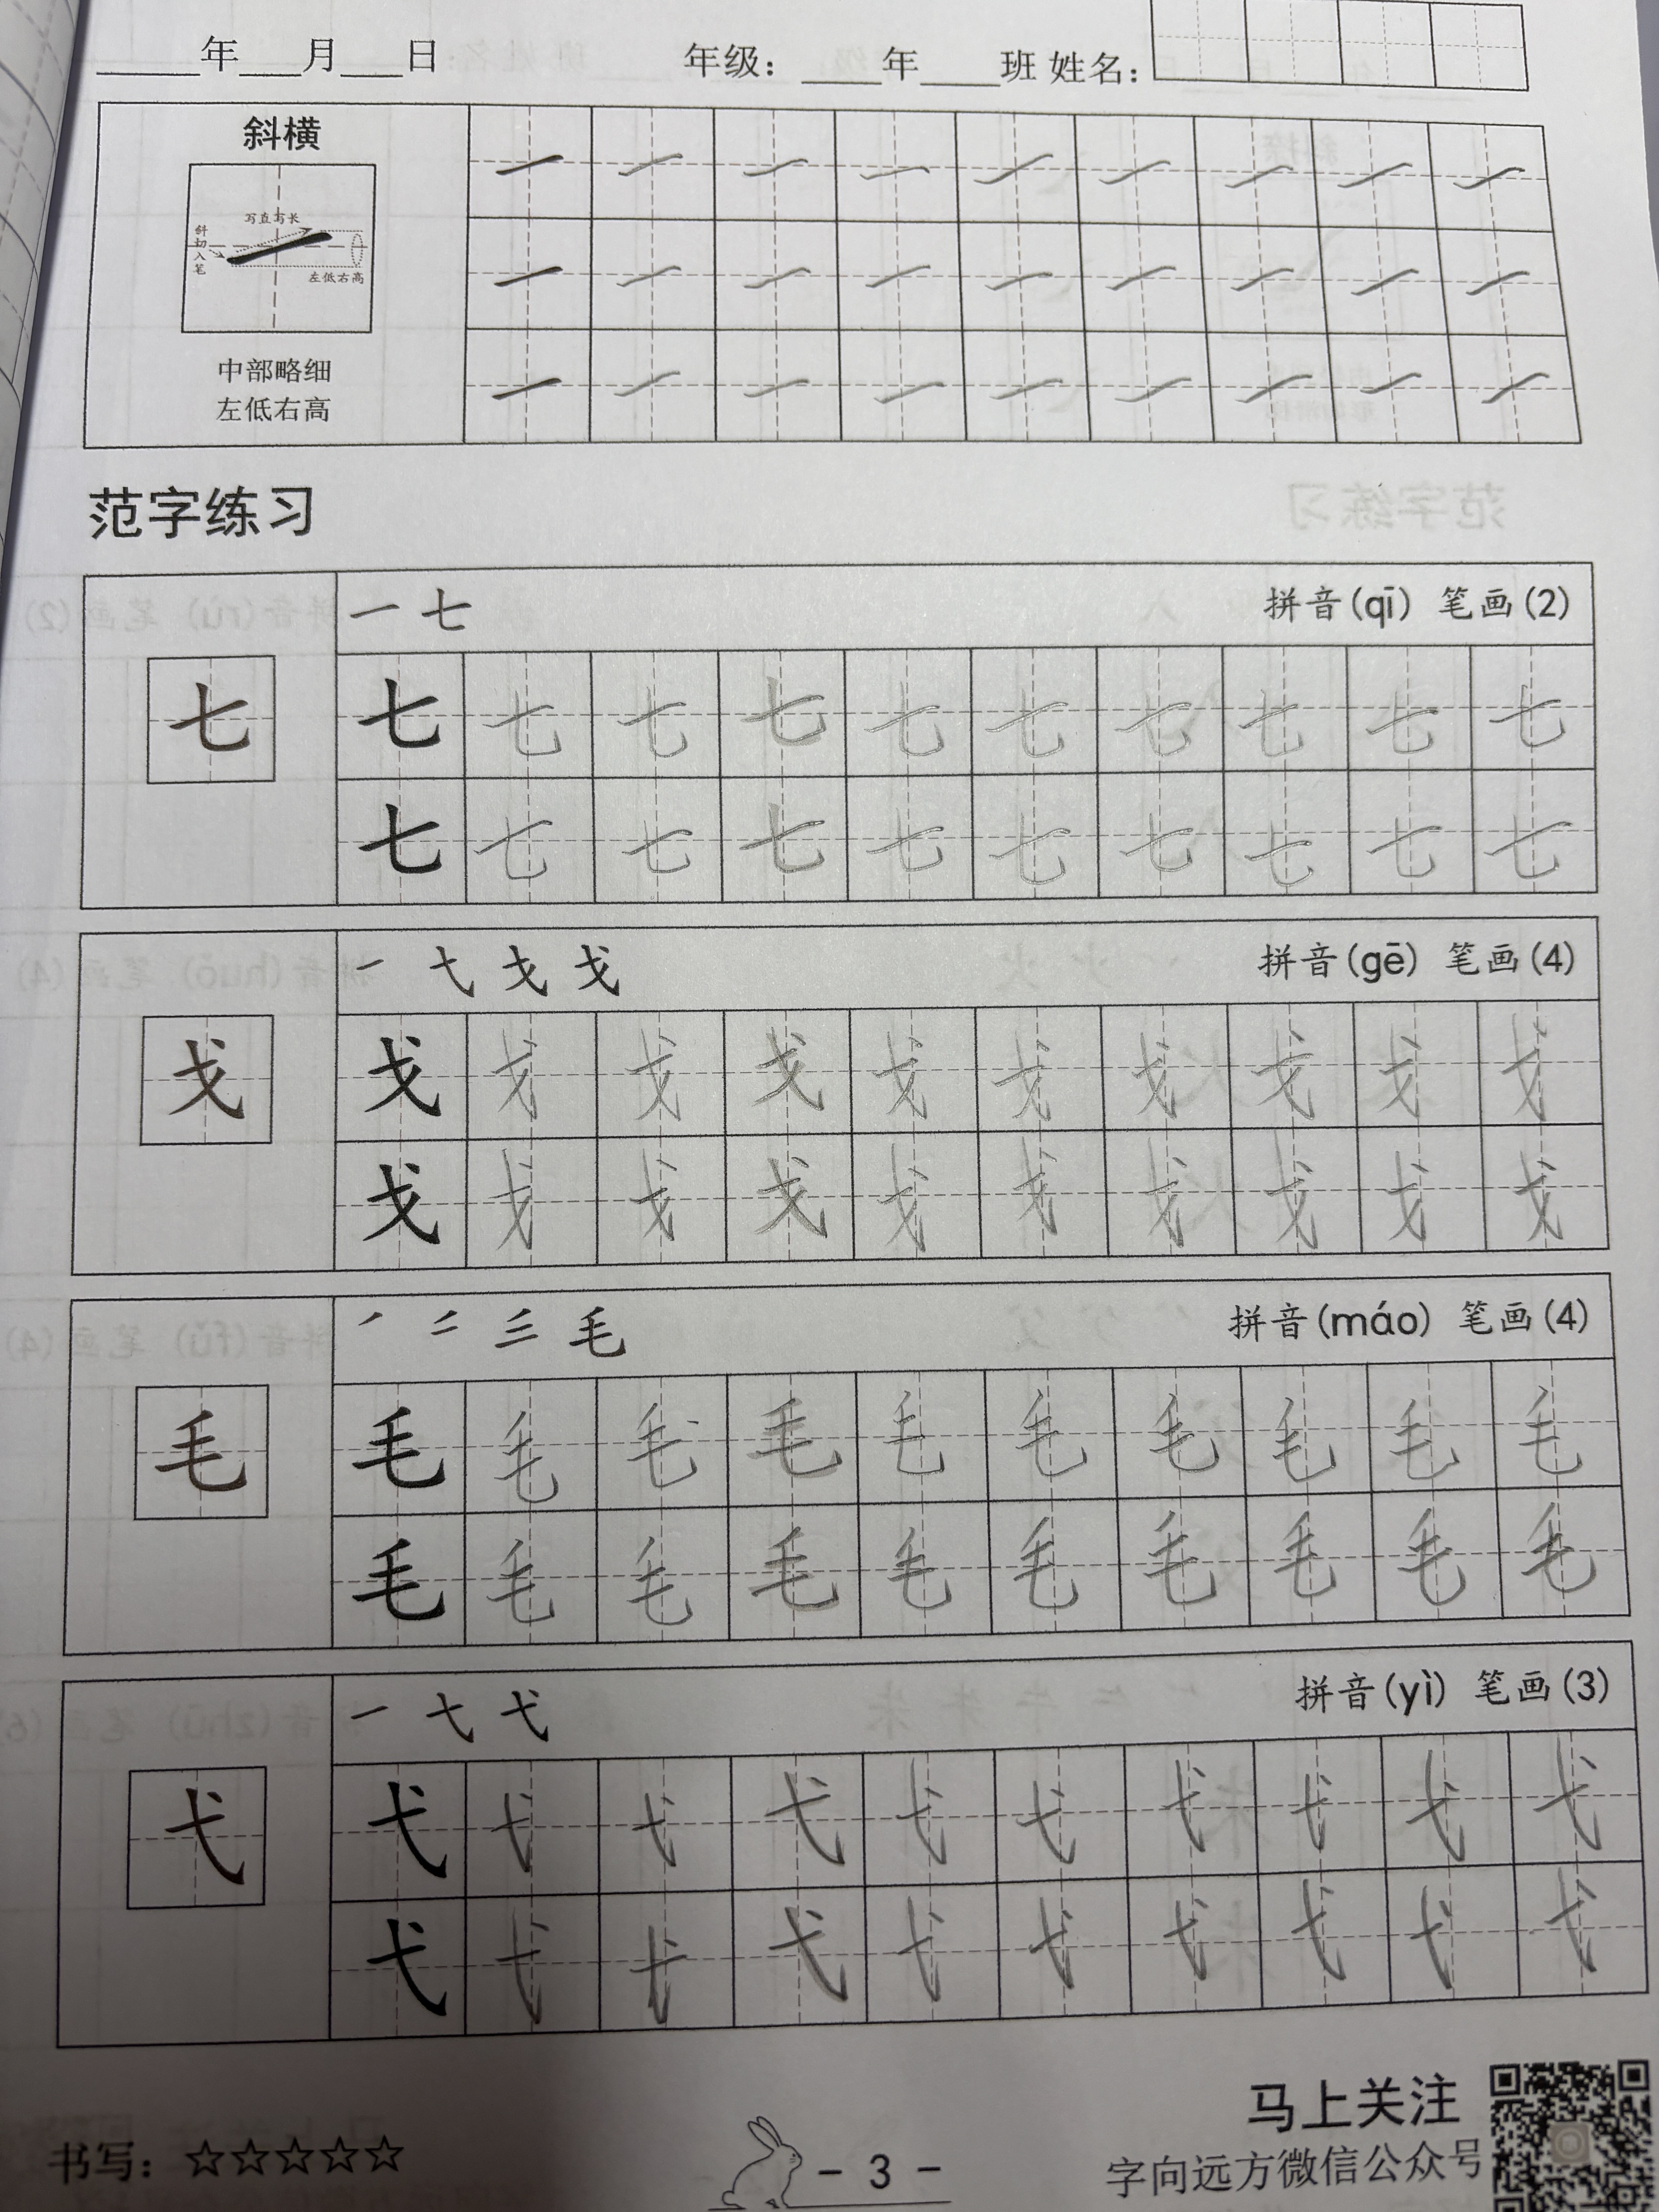 ____年___月___日 年级：____年____班 姓名：
斜横
写直写长
斜切入笔
左低右高
中部略细
左低右高
一 一 一 一 一 一 一 一 一
一 一 一 一 一 一 一 一 一
一 一 一 一 一 一 一 一 一
范字练习
一 七 拼音(qī) 笔画(2)
七
七 七 七 七 七 七 七 七 七 七
七 七 七 七 七 七 七 七 七 七
一 弋 戈 戈 拼音(gē) 笔画(4)
戈
戈 戈 戈 戈 戈 戈 戈 戈 戈 戈
戈 戈 戈 戈 戈 戈 戈 戈 戈 戈
丿 二 三 毛 拼音(máo) 笔画(4)
毛
毛 毛 毛 毛 毛 毛 毛 毛 毛 毛
毛 毛 毛 毛 毛 毛 毛 毛 毛 毛
一 七 弋 拼音(yì) 笔画(3)
弋
弋 弋 弋 弋 弋 弋 弋 弋 弋 弋
弋 弋 弋 弋 弋 弋 弋 弋 弋 弋
马上关注
字向远方微信公众号
书写：☆☆☆☆☆
- 3 -